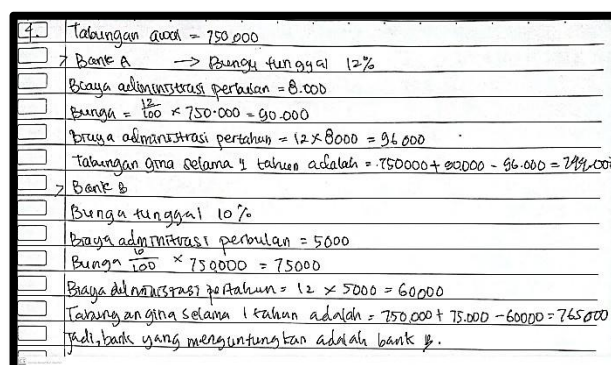 4. Tabungan awal = 750.000
> Bank A → Bunga tunggal 12%
Biaya administrasi perbulan = 8.000
Bunga = 12/100 × 750.000 = 90.000
Biaya administrasi pertahun = 12 × 8000 = 96000
Tabungan gina selama 1 tahun adalah = 750000 + 90000 - 96.000 = 744.000
> Bank B
Bunga tunggal 10%
Biaya administrasi perbulan = 5000
Bunga 10/100 × 750000 = 75000
Biaya administrasi pertahun = 12 × 5000 = 60000
Tabungan gina selama 1 tahun adalah = 750.000 + 75.000 - 60000 = 765000
Jadi, bank yang menguntungkan adalah bank B.